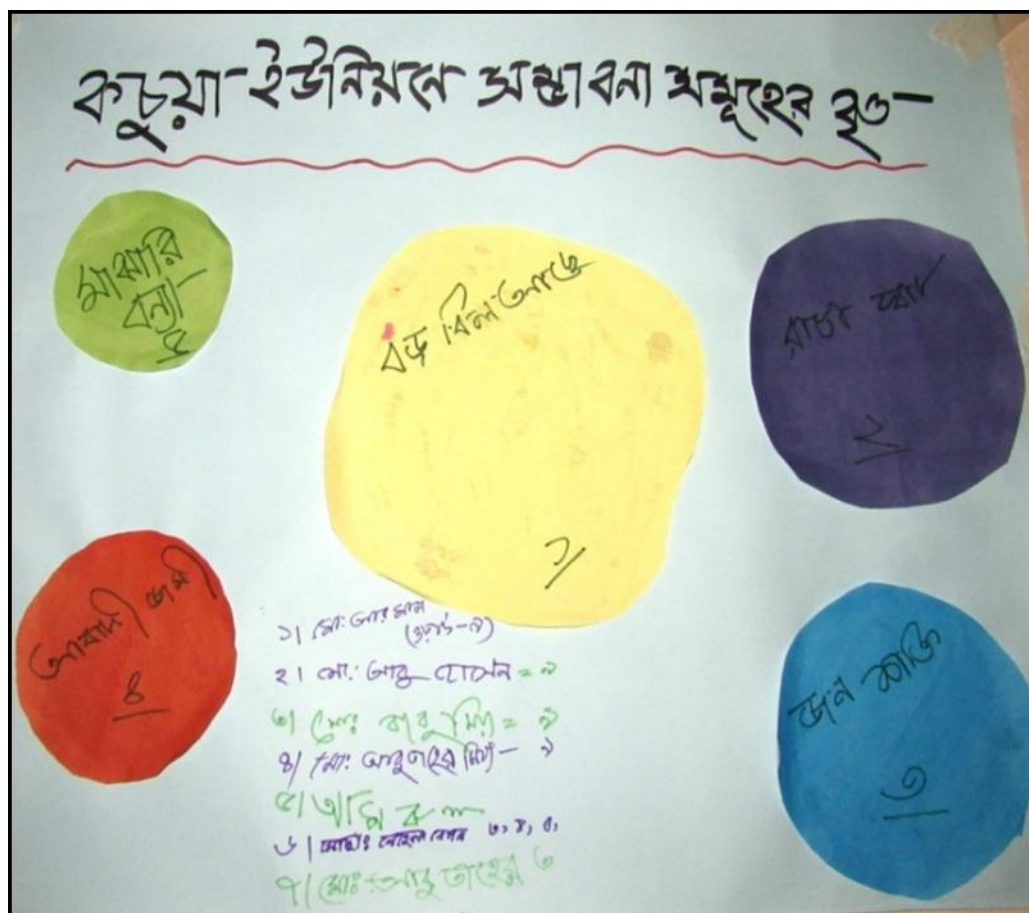 কচুয়া ইউনিয়নে সম্ভাবনা সমূহের বৃত্ত
মাঝারি
বন্যা
৫
বড় বিল আছে
১
রাস্তা ঘাট
২
আবাদী জমী
৪
জন শক্তি
৩
১। মোঃ আরমান
(ওয়ার্ড-৯)
২। মোঃ আবু হোসেন = ৯
৩। মোঃ বাবু মিয়া = ৯
৪। মোঃ আবু তাহের মিয়া - ৯
৫।
৬। মোছাঃ বেগম ৩, ৪, ৫,
৭। মোঃ আবু তাহের ৩